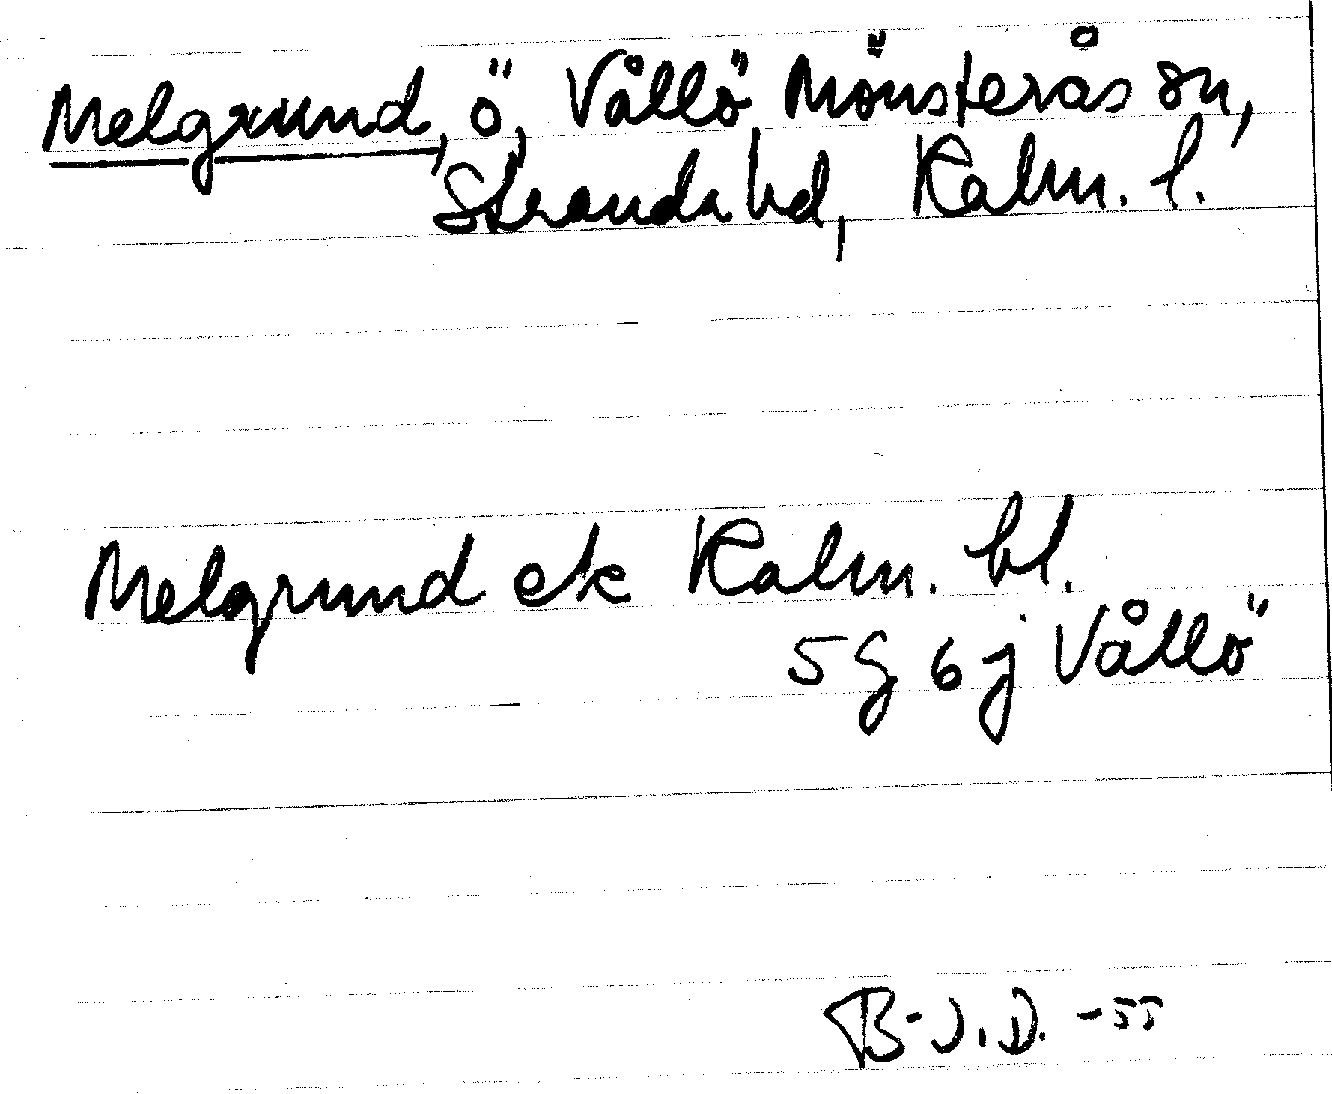 Melgrund, ö, Vållö Mönsterås sn,
Stranda hd, Kalm. l.
Melgrund ek Kalm. bl.
5g 6j Vållö
B-J.D. -55